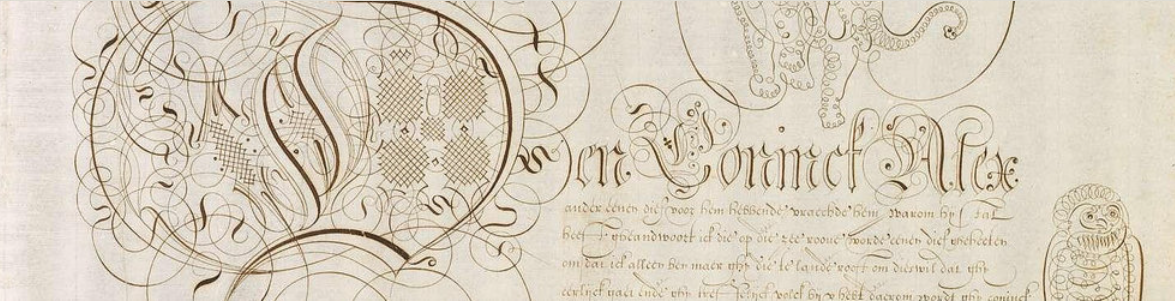 Den Coninck Alex
ander eenen dief voor hem hebbende vraechde hem warom hy
heeft gheandwoort ick die op die zee roove worde eenen dief gheheeten
om dat ick alleen ben maer ghy die te lande rooft om dieswil dat ghy
eerlyck gaet ende ghy volck by u hebt daerom wordt ghy coninck